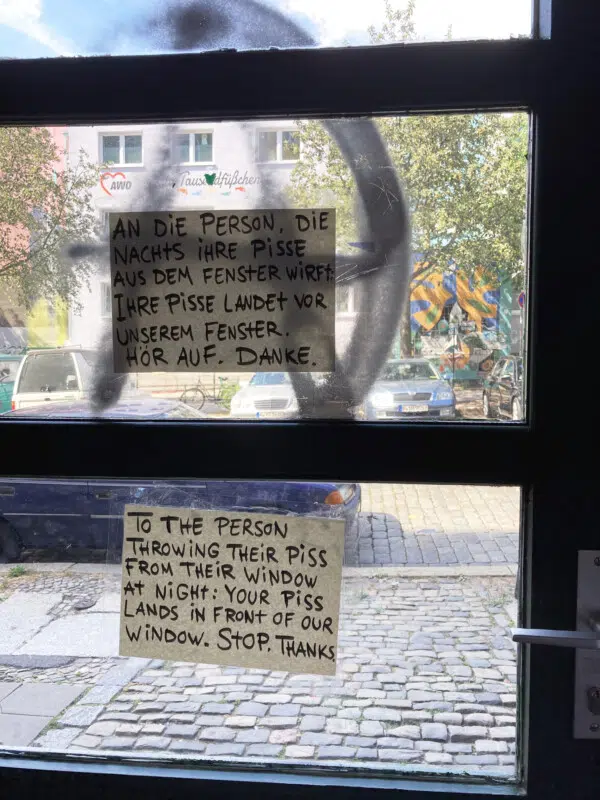 AWO
Tausendfüßchen
AN DIE PERSON, DIE
NACHTS IHRE PISSE
AUS DEM FENSTER WIRFT:
IHRE PISSE LANDET VOR
UNSEREM FENSTER.
HÖR AUF. DANKE.
TO THE PERSON
THROWING THEIR PISS
FROM THEIR WINDOW
AT NIGHT: YOUR PISS
LANDS IN FRONT OF OUR
WINDOW. STOP. THANKS.